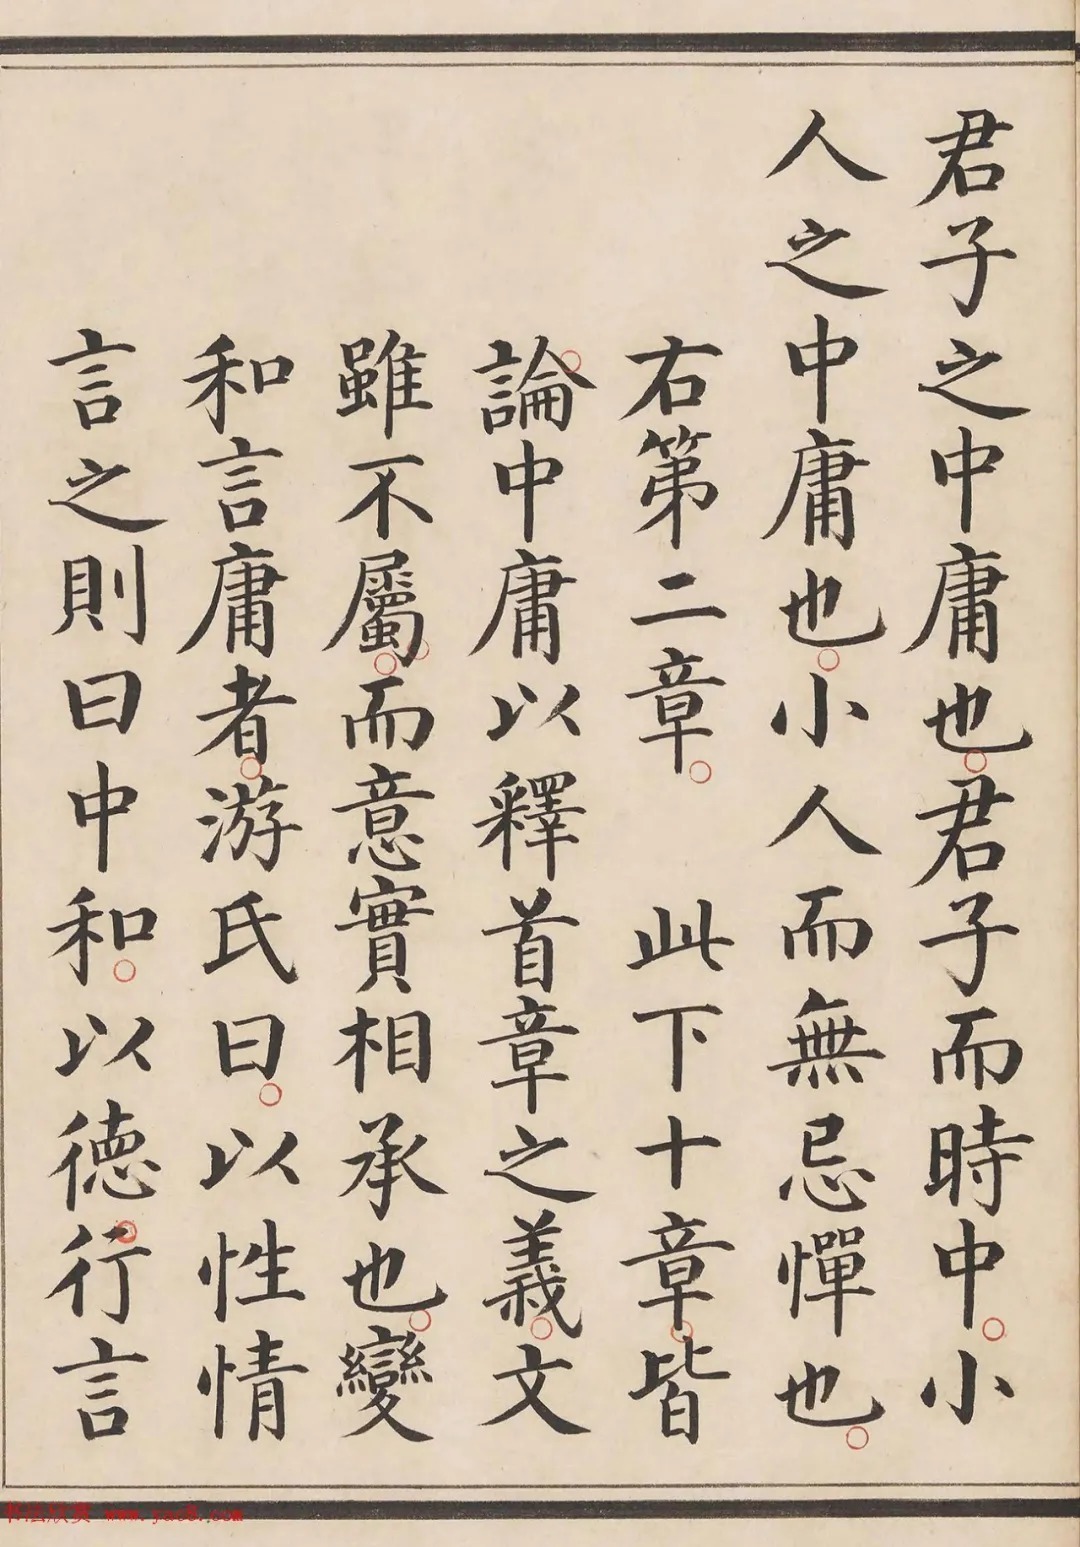 君子之中庸也。君子而時中。小
人之中庸也。小人而無忌憚也。
右第二章。 此下十章。皆
論中庸以釋首章之義。文
雖不屬。而意實相承也。變
和言庸者。游氏曰。以性情
言之則曰中和。以德行言
书法欣赏 www.yac8.com